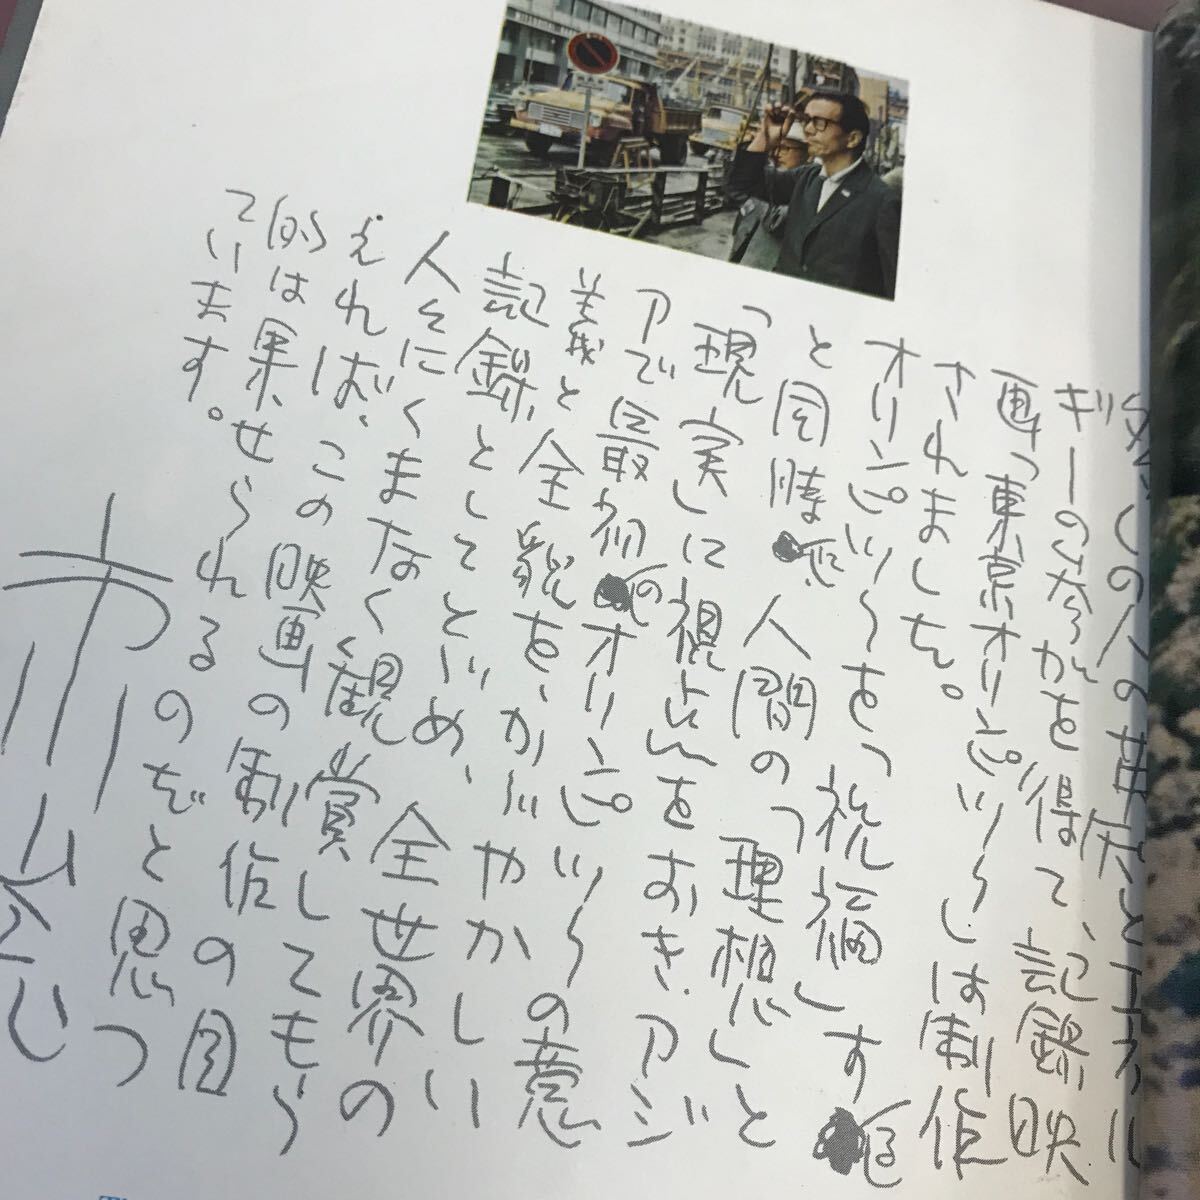 数多くの人の英知とエネル
ギーの参加を得て、記録映
画「東京オリンピック」は制作
されました。
オリンピックを「祝福」する
と同時に人間の「理想」と
「現実」に視点をおき、アジ
アで最初のオリンピックの意
義と全貌を、かがやかしい
記録としてとどめ、全世界の
人々にくまなく観賞してもら
えれば、この映画の制作の目
的は果せられるのだと思っ
ています。
市川崑